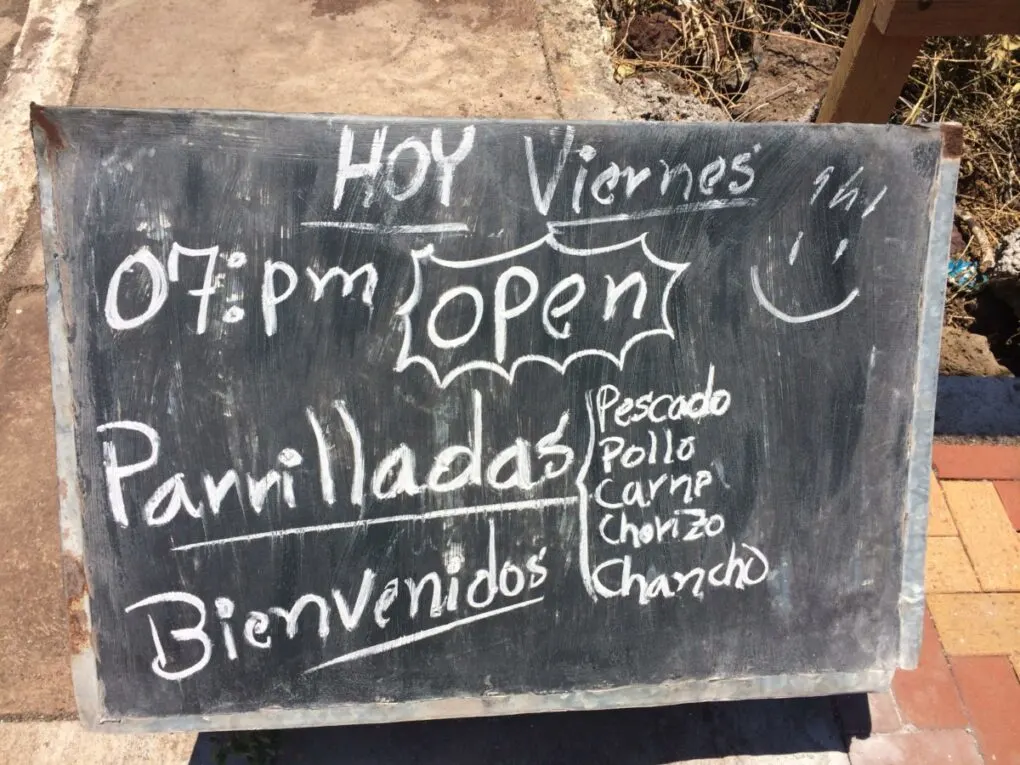 HOY Viernes
07:pm open
Parrilladas
Pescado
Pollo
Carne
Chorizo
Chancho
Bienvenidos